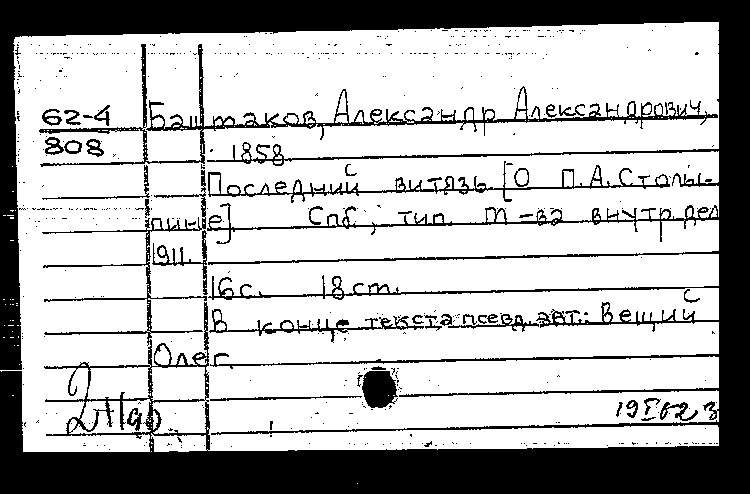 62-4 Баштаков, Александр Александрович,
808 1858
Последний витязь [О П.А. Столы-
пине]. Спб, тип. М-ва внутр. дел
1911.
16 с. 18 cm.
В конце текста псевд. авт.: Вещий
Олег.